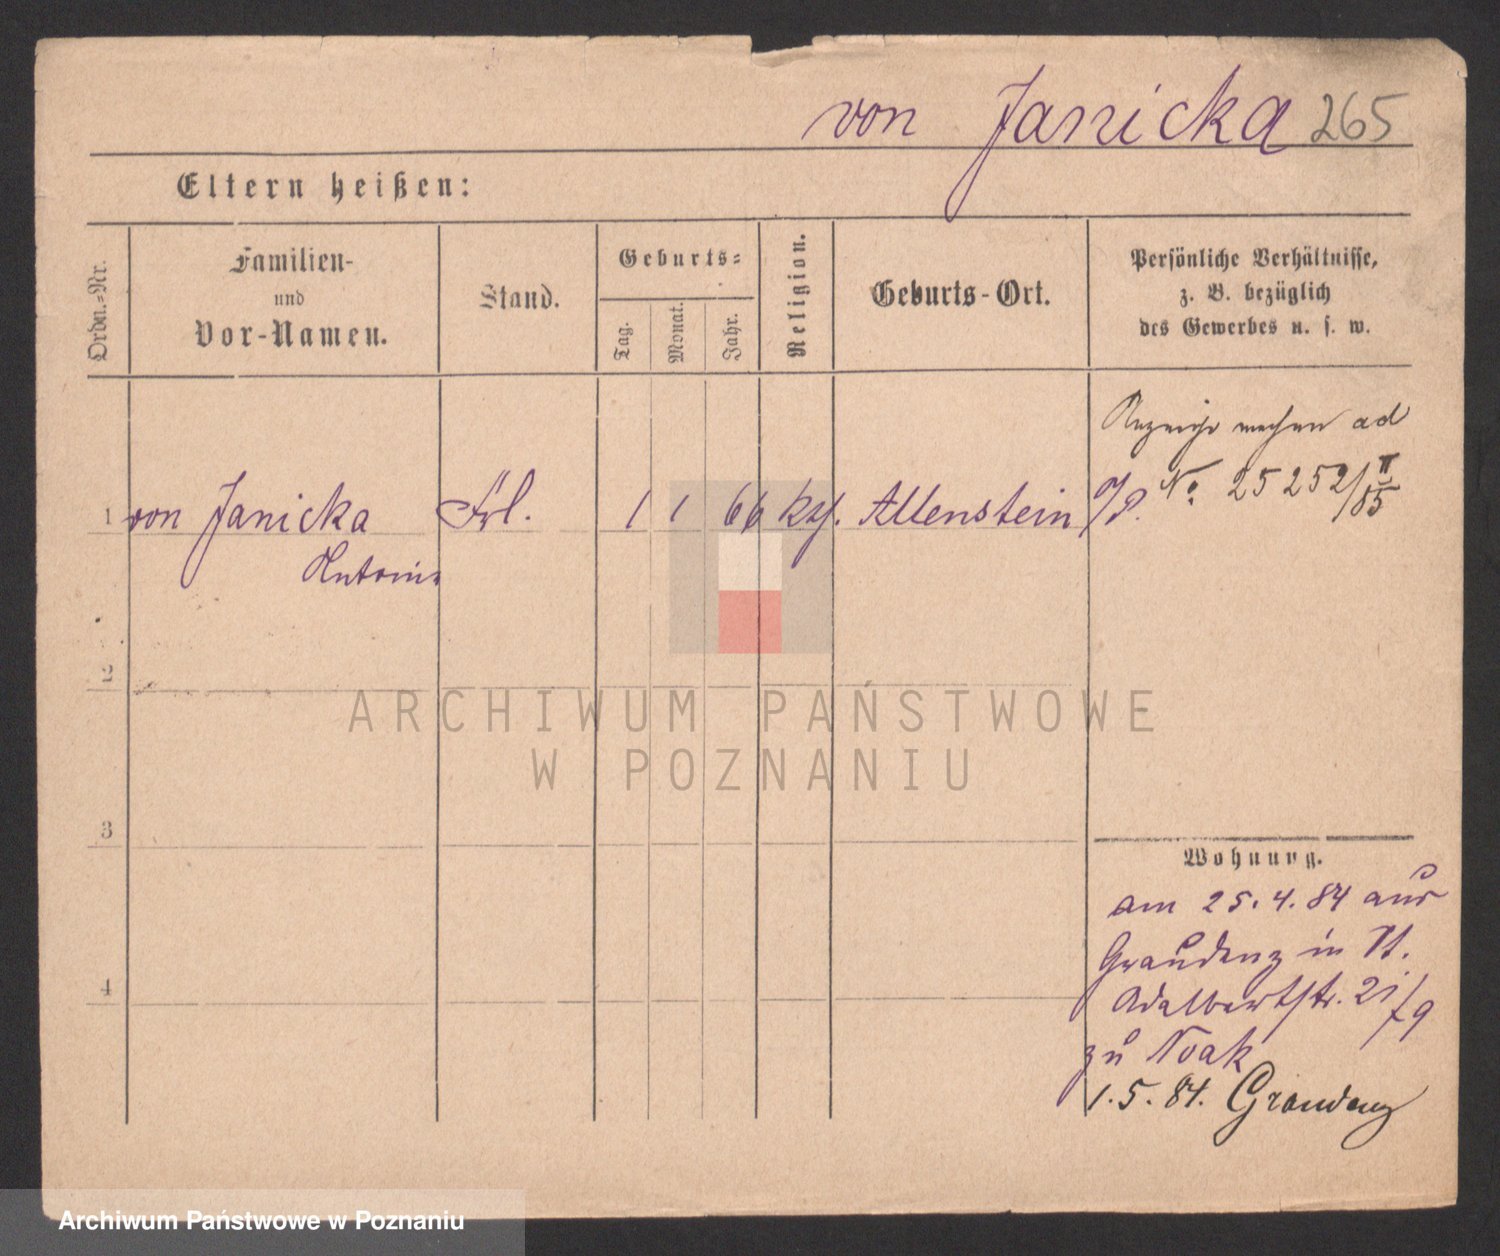 von Janicka 265
Eltern heißen:
Ordn.-Nr.
Familien-
und
Vor-Namen.
Stand.
Geburts-
Tag.
Monat.
Jahr.
Religion.
Geburts-Ort.
Persönliche Verhältnisse,
z. B. bezüglich
des Gewerbes u. s. w.
machen ad
No. 25252/II 85
1 von Janicka Frl. 1 1 66 kth. Allenstein
Antonie
2
3
4
Wohnung.
am 25.4.84 aus
Graudenz in St.
Adalbertstr.
zu Noak
1.5.84. Graudenz
ARCHIWUM PAŃSTWOWE
W POZNANIU
Archiwum Państwowe w Poznaniu